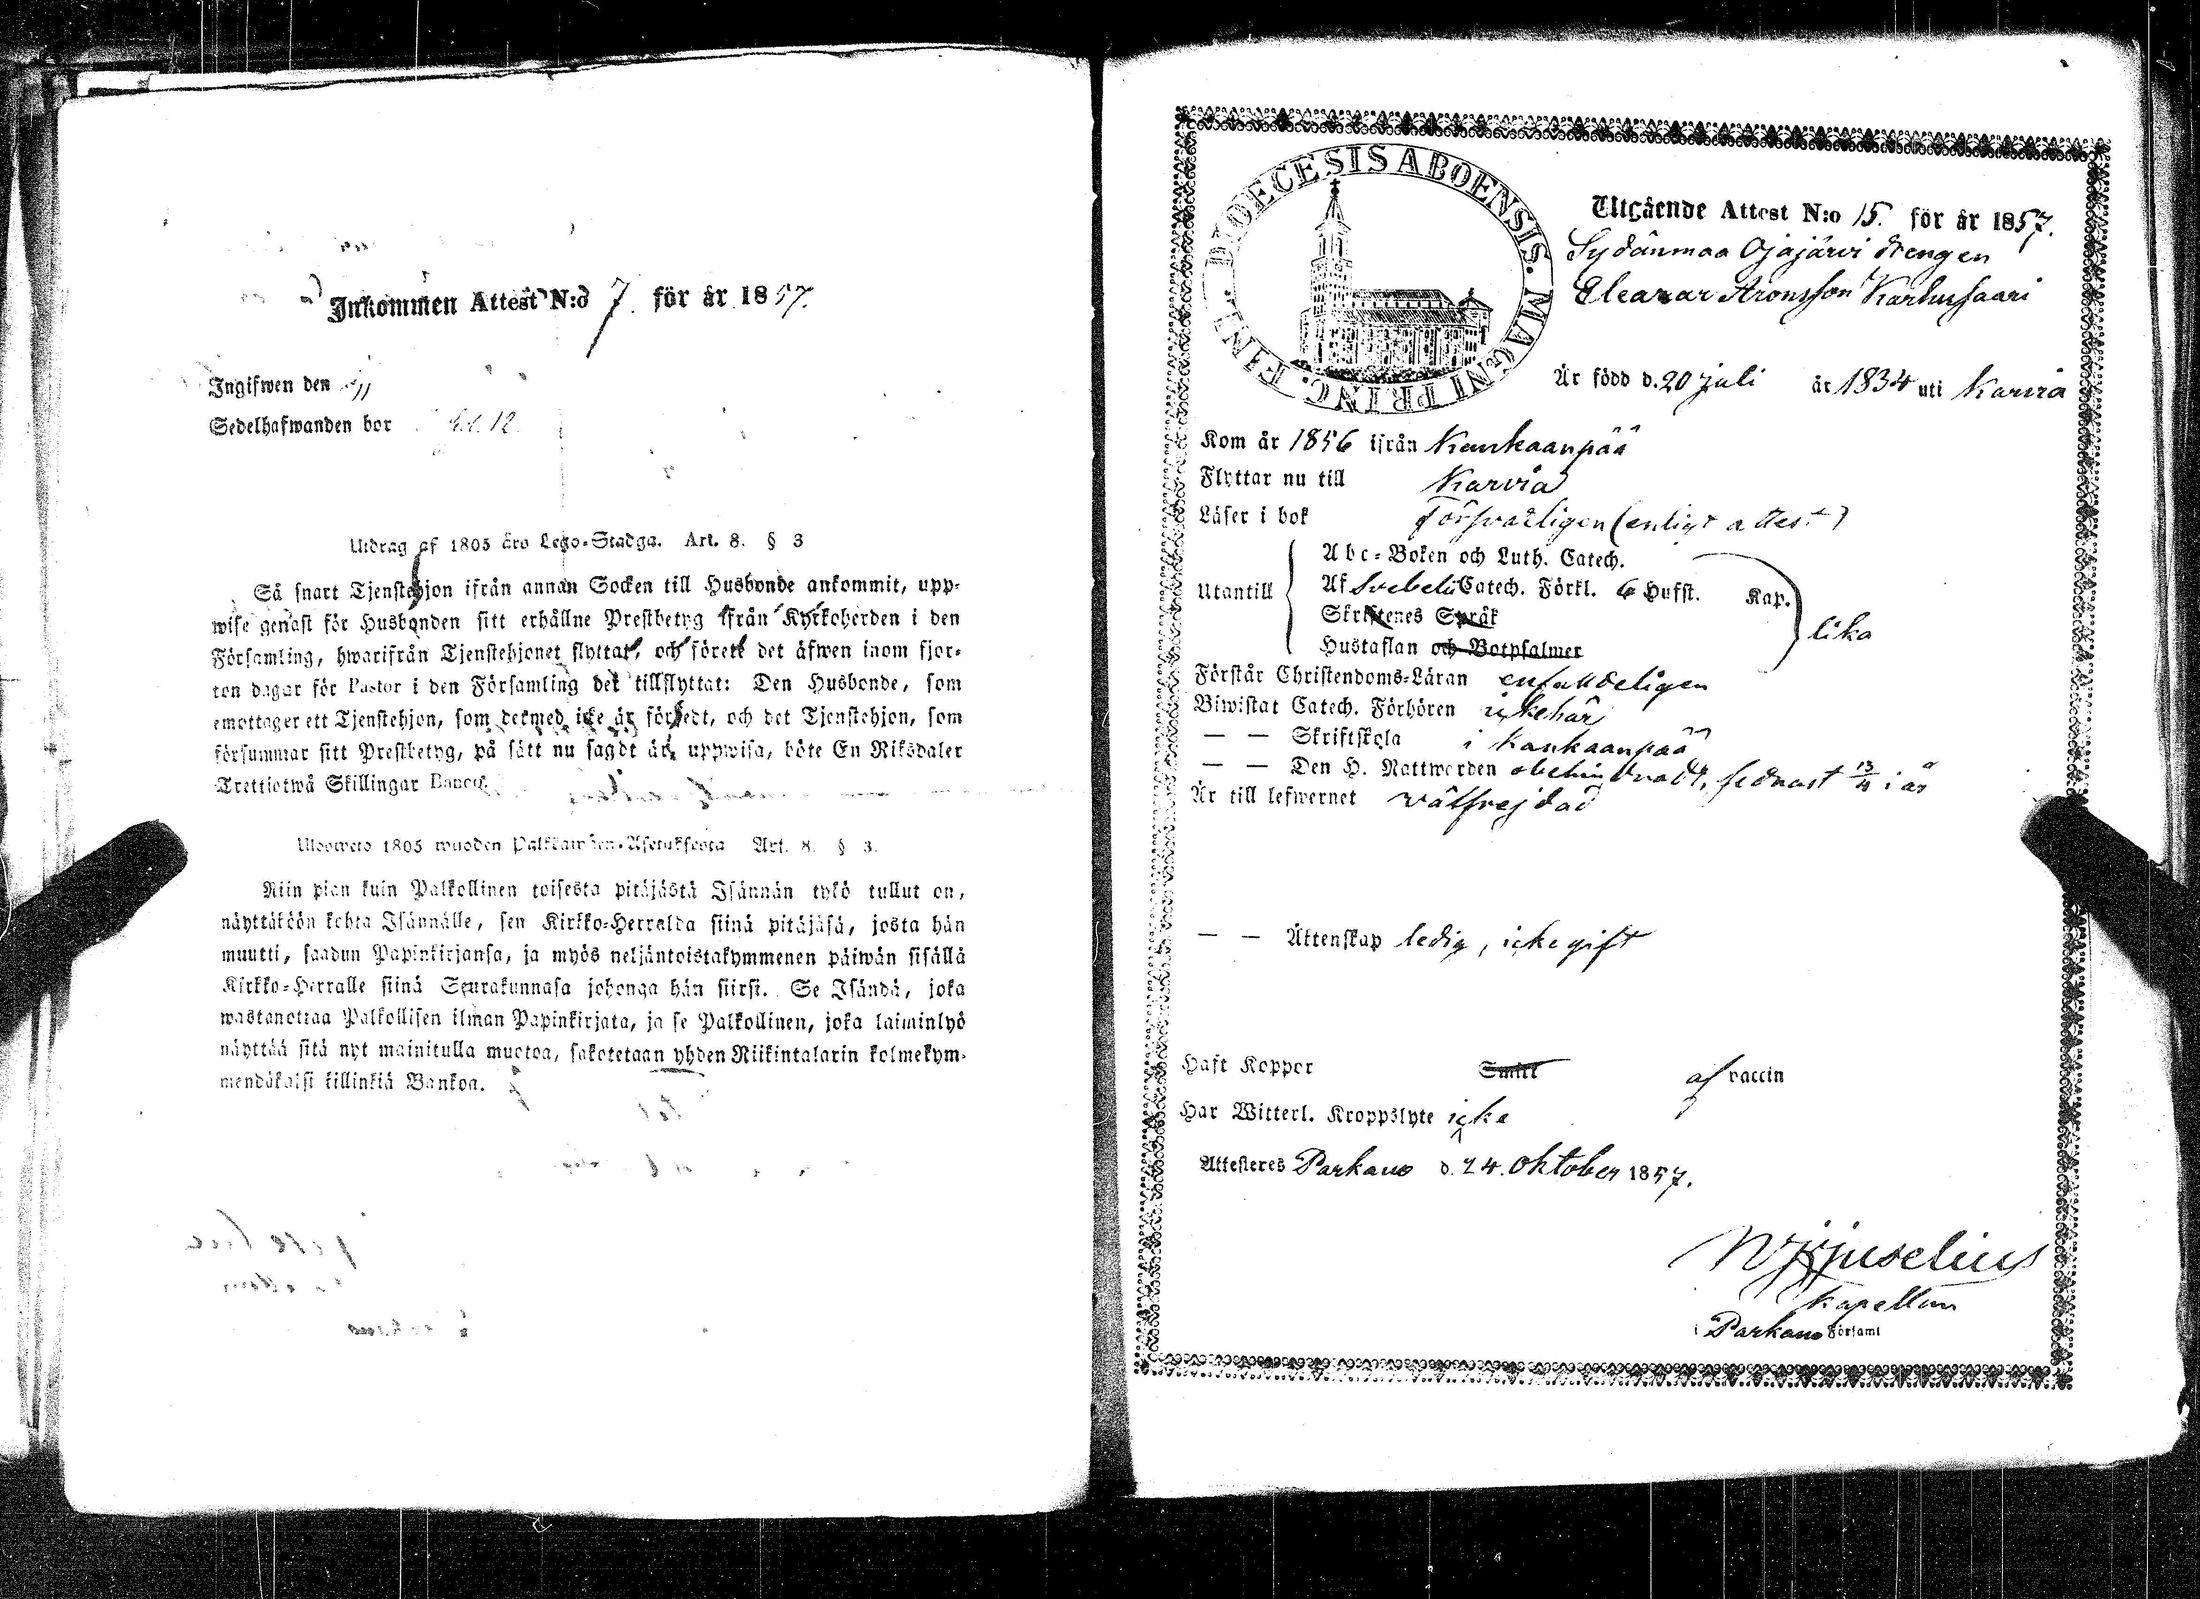 Inkommen Attest N:o 7. för år 1857.
Ingifwen den
Sedelhafwanden bor
Utdrag af 1805 års Lego-Stadga. Art. 8. § 3
Så snart Tjenstehjon ifrån annan Socken till Husbonde ankommit, upp-
wise genast för Husbonden sitt erhållne Prestbetyg ifrån Kyrkoherden i den
Församling, hwarifrån Tjenstehjonet flyttat, och förete det äfwen inom fjor-
ton dagar för Pastor i den Församling det tillflyttat: Den Husbonde, som
emottager ett Tjenstehjon, som dermed icke är försedt, och det Tjenstehjon, som
försummar sitt Prestbetyg, på sätt nu sagdt är, uppwisa, böte En Riksdaler
Trettiotwå Skillingar Banco.
Ulosweto 1805 wuoden Palkkawäen-Asetuksesta Art. 8. § 3.
Niin pian kuin Palkollinen toisesta pitäjästä Isännän tykö tullut on,
näyttäköön kohta Isännälle, sen Kirkko-Herralda siinä pitäjäsä, josta hän
muutti, saadun Papinkirjansa, ja myös neljäntoistakymmenen päiwän sisällä
Kirkko-Herralle siinä Seurakunnasa johonga hän siirsi. Se Isändä, joka
wastanottaa Palkollisen ilman Papinkirjata, ja se Palkollinen, joka laiminlyö
näyttää sitä nyt mainitulla muotoa, sakotetaan yhden Riikintalarin kolmekym-
mendäkaksi killinkiä Bankoa.
DIOECESIS ABOENSIS. MAGNI PRINC. FINL.
Utgående Attest N:o 15. för år 1857.
Sydänmaa Ojajärvi drengen
Eleazar Aronsson Karhusaari
Är född d. 20 juli år 1834 uti Karvia
Kom år 1856 ifrån Kankaanpää
Flyttar nu till Karvia
Läser i bok försvarligen (enligt attest)
Abc-Boken och Luth. Catech.
Utantill Af Svebelii Catech. Förkl. 6 Hufst. Kap.
Skriftenes Språk
Hustaflan och Botpsalmer lika
Förstår Christendoms-Läran enfalldeligen
Biwistat Catech. Förhören icke här
— — Skriftskola i Kankaanpää
— — Den H. Nattwarden obehindradt, sednast 13/4 i år
Är till lefwernet välfrejdad
— — Äktenskap ledig, icke gift
Haft Koppor Smitt af vaccin
Har Witterl. Kroppslyte icke
Attesteres Parkano d. 24. Oktober 1857.
Juselius
Kapellan
i Parkano Församl